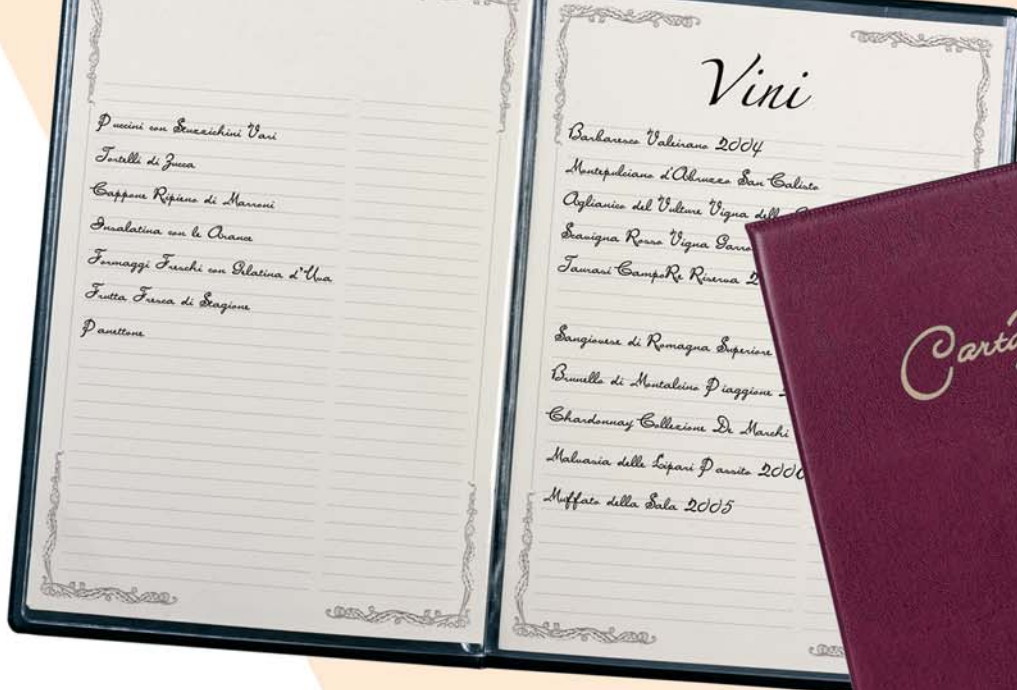 Puccini con Stuzzichini Vari
Tortelli di Zucca
Cappone Ripieno di Marroni
Insalatina con le Arance
Formaggi Freschi con Gelatina d'Uva
Frutta Fresca di Stagione
Panettone
Vini
Barbaresco Valeirano 2004
Montepulciano d'Abruzzo San Calisto
Aglianico del Vulture Vigna
Scavigna Rosso Vigna
Taurasi CampoRe Riserva
Sangiovese di Romagna Superiore
Brunello di Montalcino Piaggione
Chardonnay Collezione De Marchi
Malvasia delle Lipari Passito
Muffato della Sala 2005
Carta